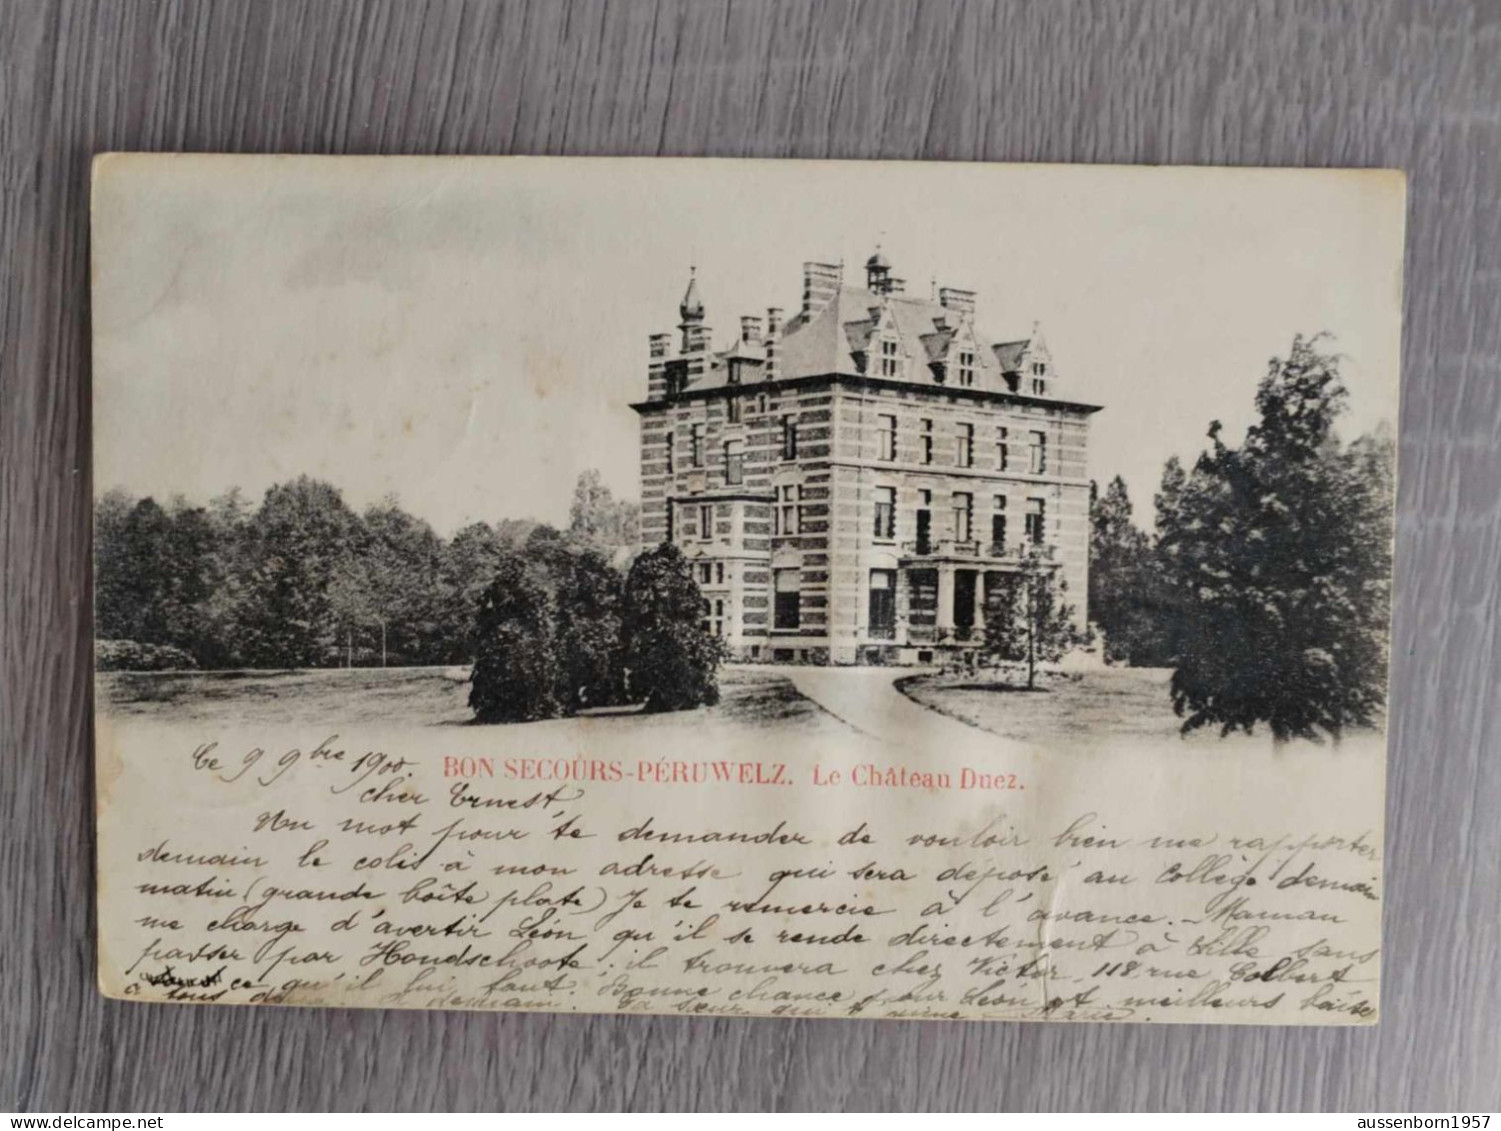 Ce 9 9bre 1900.
BON SECOURS-PÉRUWELZ. Le Château Duez.
cher Ernest,
Un mot pour te demander de vouloir bien me rapporter
demain le colis à mon adresse qui sera déposé au Collège demain
matin (grande boîte plate) Je te remercie à l'avance. - Maman
me charge d'avertir Léon qu'il se rende directement à Lille sans
passer par Hondschoote; il trouvera chez Victor, 118 rue Colbert
ce qu'il lui faut. Bonne chance pour Léon et meilleurs baisers
à tous deux. A demain. Ta sœur qui t'aime Marie.
aussenborn1957